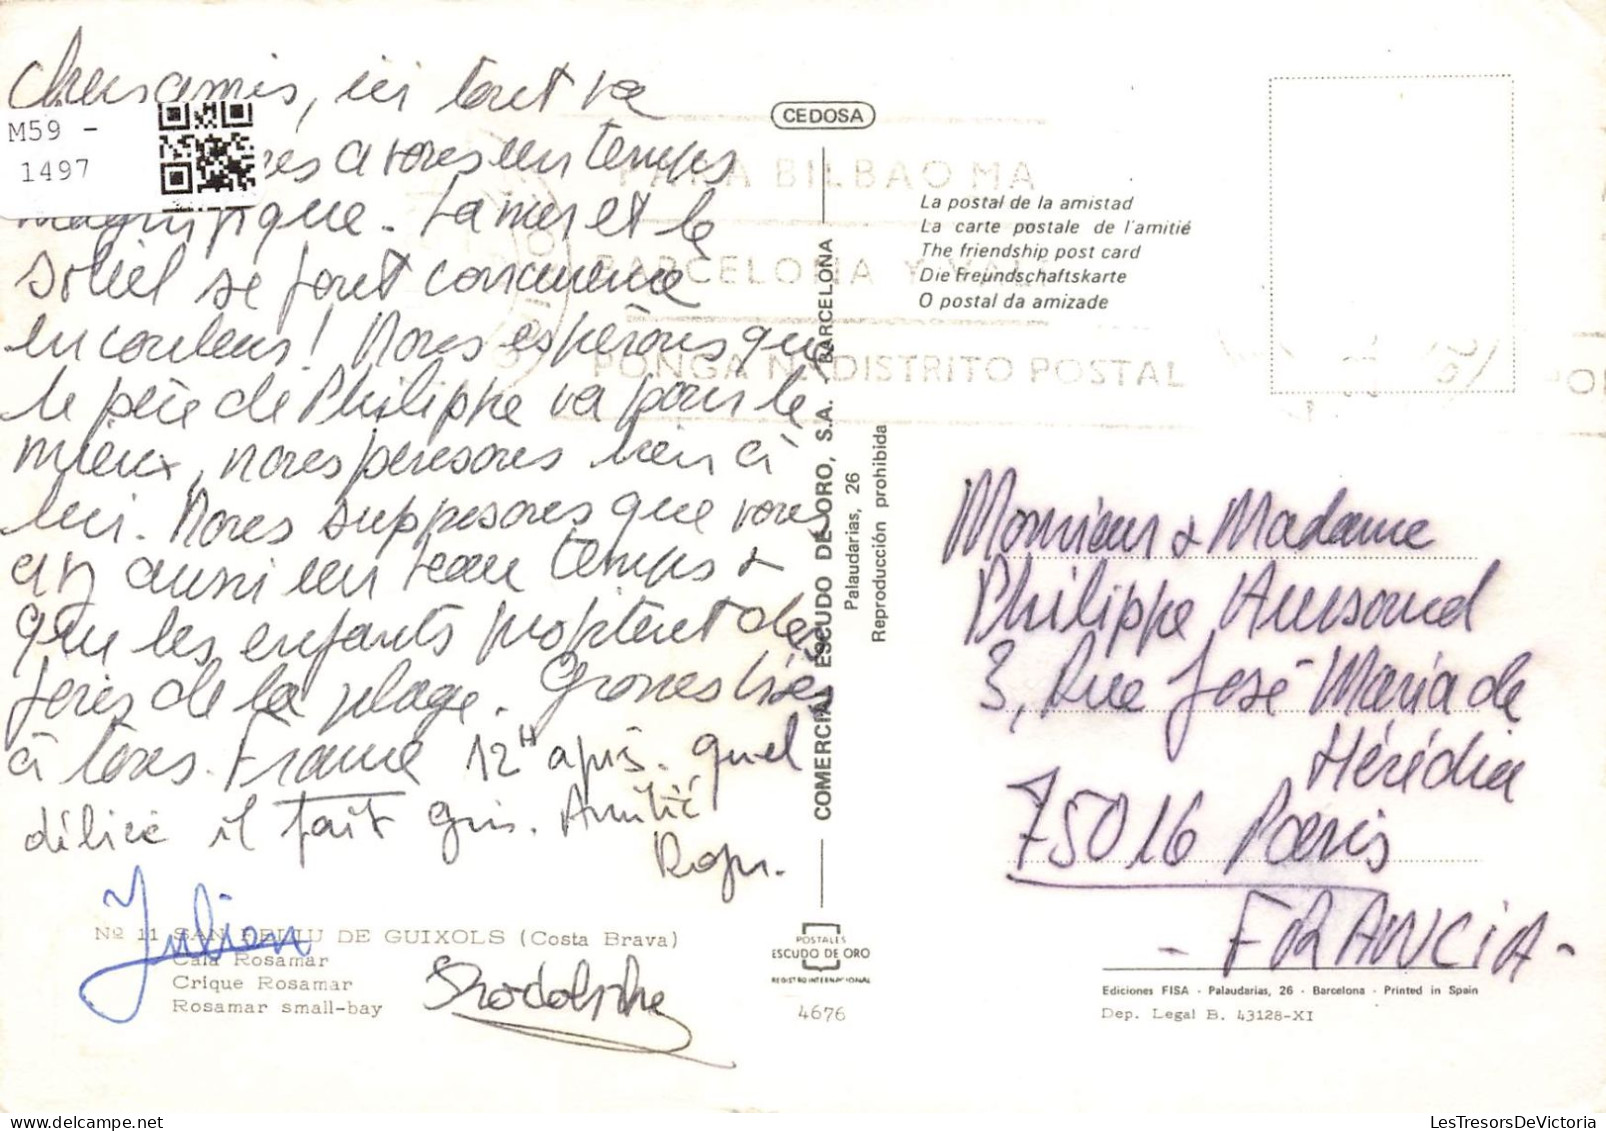 Chers amis, ici tout va
M59 -
1497
avons un temps
magnifique. La mer et le
soleil se font concurrence
en couleurs! Nous espérons que
le père de Philippe va pour le
mieux, nous pensons bien à
lui. Nous supposons que vous
avez aussi un beau temps &
que les enfants profitent des
joies de la plage. Grosses bises
à tous. France 12H après. quel
délice il fait gris. Amitié
Roger.
Julien
Nº 11 SAN FELIU DE GUIXOLS (Costa Brava)
Cala Rosamar
Crique Rosamar
Rosamar small-bay
Rodolphe
CEDOSA
COMERCIAL ESCUDO DE ORO, S.A. BARCELONA
Palaudarias, 26
Reproducción prohibida
POSTALES
ESCUDO DE ORO
REGISTRO INTERNACIONAL
4676
PARA BILBAO MA
BARCELONA Y
PONGA Nº DISTRITO POSTAL
La postal de la amistad
La carte postale de l'amitié
The friendship post card
Die Freundschaftskarte
O postal da amizade
Monsieur & Madame
Philippe
3, Rue José Maria de
Hérédia
75016 Paris
- FRANCIA -
Ediciones FISA - Palaudarias, 26 - Barcelona - Printed in Spain
Dep. Legal B. 43128-XI
LesTresorsDeVictoria